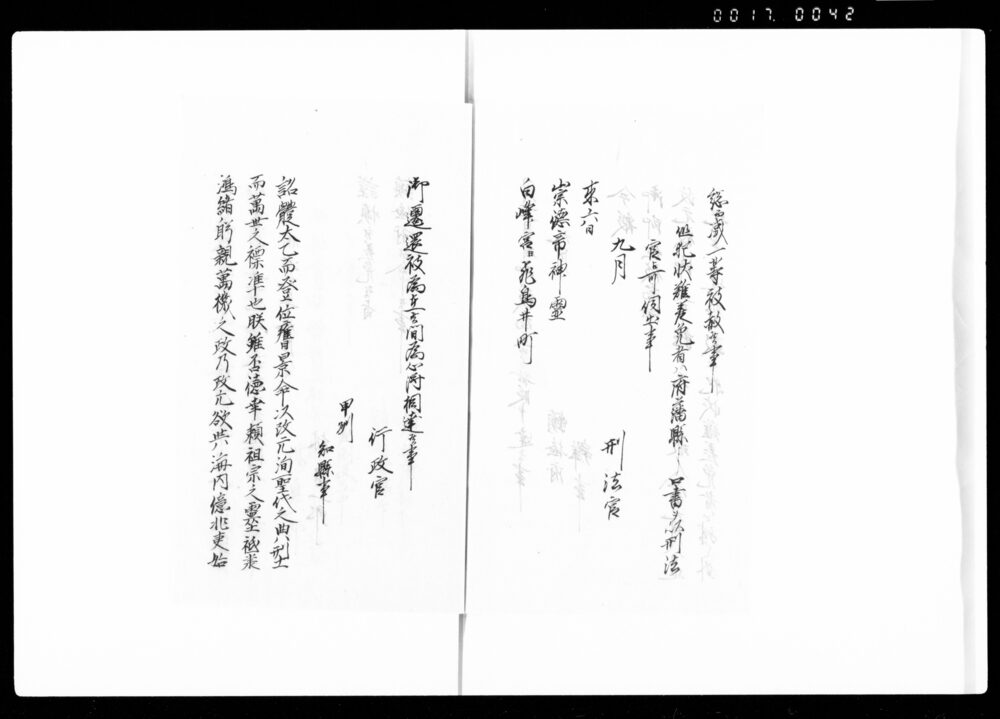 0017. 0042
総而減一等被赦候事
但犯状難差免者ハ府藩縣ヨリ口書ヲ以刑法
官ニ可伺出事
九月
刑法官
来六日
崇德帝神靈
白峰宮飛鳥井町
御遷還被為在候間為心得相達候事
行政官
甲州
知縣事
詔體太乙而登位膺景命以改元洵聖代之典型
而萬世之標準也朕雖否德幸賴祖宗之靈祗承
鴻緒躬親萬機之政乃改元欲與海內億兆更始